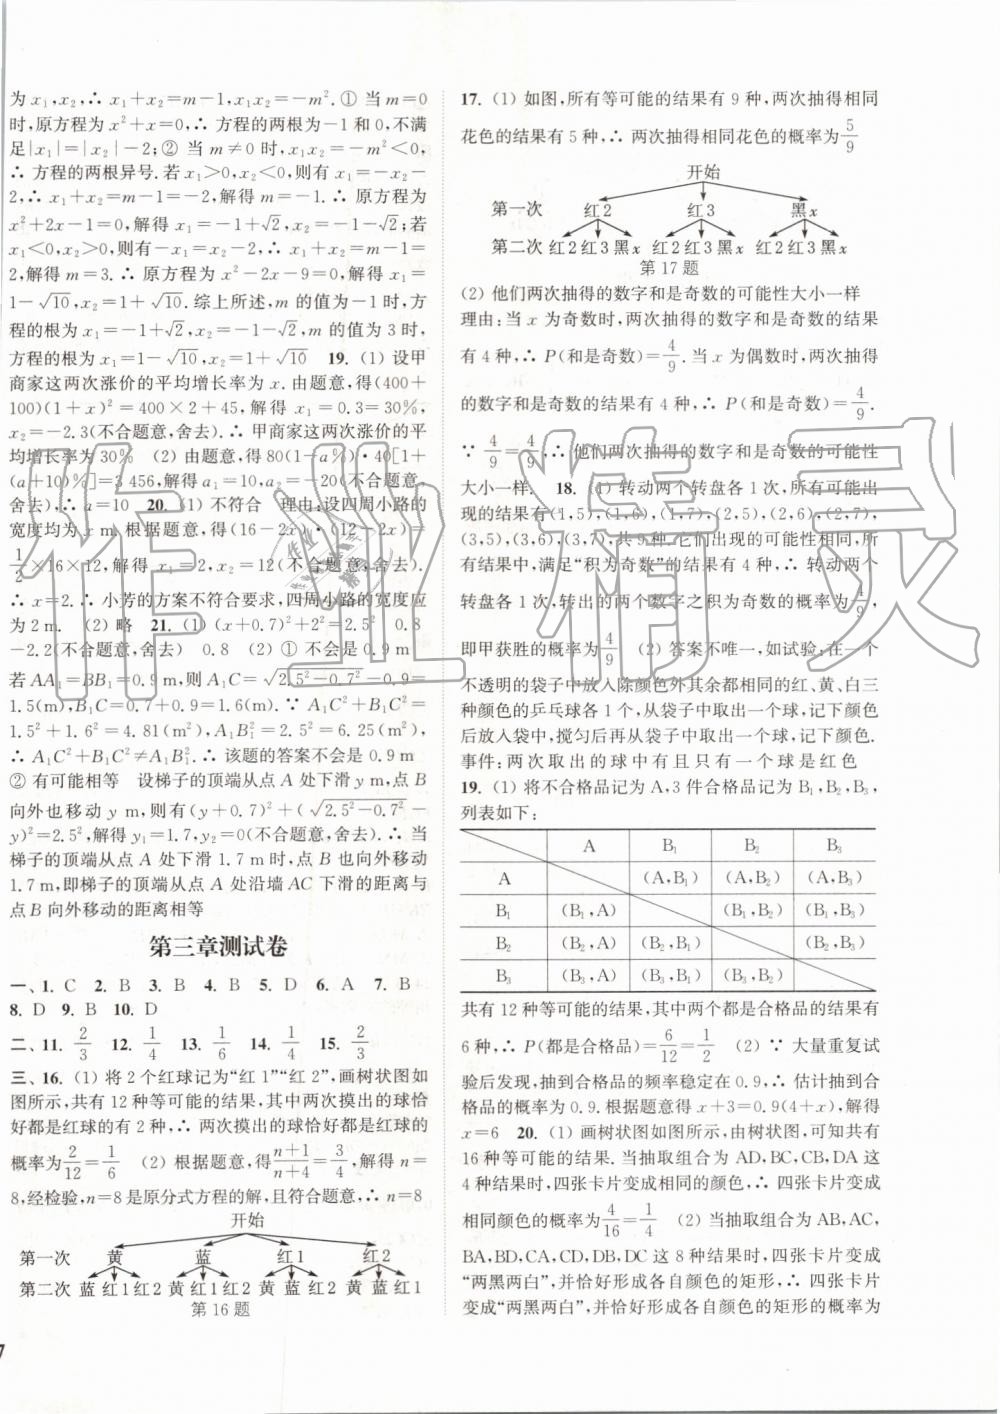 为x₁,x₂,∴ x₁+x₂=m-1,x₁x₂=-m².① 当m=0
时,原方程为x²+x=0,∴ 方程的两根为-1和0,不满
足|x₁|=|x₂|-2;② 当m≠0时,x₁x₂=-m²<0,
∴ 方程的两根异号.若x₁>0,x₂<0,则有x₁=-x₂-
2,∴ x₁+x₂=m-1=-2,解得m=-1.∴ 原方程为
x²+2x-1=0,解得x₁=-1+√2,x₂=-1-√2;若
x₁<0,x₂>0,则有-x₁=x₂-2,∴ x₁+x₂=m-1=
2,解得m=3.∴ 原方程为x²-2x-9=0,解得x₁=
1-√10,x₂=1+√10.综上所述,m的值为-1时,方
程的根为x₁=-1+√2,x₂=-1-√2,m的值为3时,
方程的根为x₁=1-√10,x₂=1+√10 19. (1) 设甲
商家这两次涨价的平均增长率为x.由题意,得(400+
100)(1+x)²=400×2+45,解得x₁=0.3=30%,
x₂=-2.3(不合题意,舍去).∴ 甲商家这两次涨价的平
均增长率为30% (2) 由题意,得80(1-a%)·40[1+
(a+10)%]=3 456,解得a₁=10,a₂=-20(不合题意,
舍去).∴ a=10 20. (1) 不符合 理由:设四周小路的
宽度均为x m.根据题意,得(16-2x)·(12-2x)=
1/2×16×12,解得x₁=2,x₂=12(不合题意,舍去).
∴ x=2.∴ 小芳的方案不符合要求,四周小路的宽度应
为2 m. (2) 略 21. (1) (x+0.7)²+2²=2.5² 0.8
-2.2(不合题意,舍去) 0.8 (2) ① 不会是0.9 m
若AA₁=BB₁=0.9 m,则A₁C=√(2.5²-0.7²)-0.9=
1.5(m),B₁C=0.7+0.9=1.6(m).∵ A₁C²+B₁C²=
1.5²+1.6²=4.81(m²),A₁B₁²=2.5²=6.25(m²),
∴ A₁C²+B₁C²≠A₁B₁².∴ 该题的答案不会是0.9 m
② 有可能相等 设梯子的顶端从点A处下滑y m,点B
向外也移动y m,则有(y+0.7)²+(√(2.5²-0.7²)-
y)²=2.5²,解得y₁=1.7,y₂=0(不合题意,舍去).∴ 当
梯子的顶端从点A处下滑1.7 m时,点B也向外移动
1.7 m,即梯子的顶端从点A处沿墙AC下滑的距离与
点B向外移动的距离相等
第三章测试卷
一、1. C 2. B 3. B 4. B 5. D 6. A 7. B
8. D 9. B 10. D
二、11. 2/3 12. 1/4 13. 1/6 14. 1/4 15. 2/3
三、16. (1) 将2个红球记为“红1”“红2”,画树状图如
图所示,共有12种等可能的结果,其中两次摸出的球恰
好都是红球的有2种,∴ 两次摸出的球恰好都是红球的
概率为2/12=1/6 (2) 根据题意,得(n+1)/(n+4)=3/4,解得n=
8,经检验,n=8是原分式方程的解,且符合题意,∴ n=8
开始
第一次 黄 蓝 红1 红2
第二次 蓝 红1 红2 黄 红1 红2 黄 蓝 红2 黄 蓝 红1
第16题
17. (1) 如图,所有等可能的结果有9种,两次抽得相同
花色的结果有5种,∴ 两次抽得相同花色的概率为5/9
开始
第一次 红2 红3 黑x
第二次 红2 红3 黑x 红2 红3 黑x 红2 红3 黑x
第17题
(2) 他们两次抽得的数字和是奇数的可能性大小一样
理由:当x为奇数时,两次抽得的数字和是奇数的结果
有4种,∴ P(和是奇数)=4/9.当x为偶数时,两次抽得
的数字和是奇数的结果有4种,∴ P(和是奇数)=4/9.
∵ 4/9=4/9,∴ 他们两次抽得的数字和是奇数的可能性
大小一样. 18. (1) 转动两个转盘各1次,所有可能出
现的结果有(1,5),(1,6),(1,7),(2,5),(2,6),(2,7),
(3,5),(3,6),(3,7),共9种.它们出现的可能性相同,所
有结果中,满足“积为奇数”的结果有4种,∴ 转动两个
转盘各1次,转出的两个数字之积为奇数的概率为4/9,
即甲获胜的概率为4/9 (2) 答案不唯一,如试验:在一个
不透明的袋子中放入除颜色外其余都相同的红、黄、白三
种颜色的乒乓球各1个,从袋子中取出一个球,记下颜色
后放入袋中,搅匀后再从袋子中取出一个球,记下颜色.
事件:两次取出的球中有且只有一个球是红色
19. (1) 将不合格品记为A,3件合格品记为B₁,B₂,B₃,
列表如下:
A B₁ B₂ B₃
A (A,B₁) (A,B₂) (A,B₃)
B₁ (B₁,A) (B₁,B₂) (B₁,B₃)
B₂ (B₂,A) (B₂,B₁) (B₂,B₃)
B₃ (B₃,A) (B₃,B₁) (B₃,B₂)
共有12种等可能的结果,其中两个都是合格品的结果有
6种,∴ P(都是合格品)=6/12=1/2 (2) ∵ 大量重复试
验后发现,抽到合格品的频率稳定在0.9,∴ 估计抽到合
格品的概率为0.9.根据题意得x+3=0.9(4+x),解得
x=6 20. (1) 画树状图如图所示,由树状图,可知共有
16种等可能的结果.当抽取组合为AD,BC,CB,DA这
4种结果时,四张卡片变成相同的颜色,∴ 四张卡片变成
相同颜色的概率为4/16=1/4 (2) 当抽取组合为AB,AC,
BA,BD,CA,CD,DB,DC这8种结果时,四张卡片变成
“两黑两白”,并恰好形成各自颜色的矩形,∴ 四张卡片
变成“两黑两白”,并恰好形成各自颜色的矩形的概率为
7
作业精灵